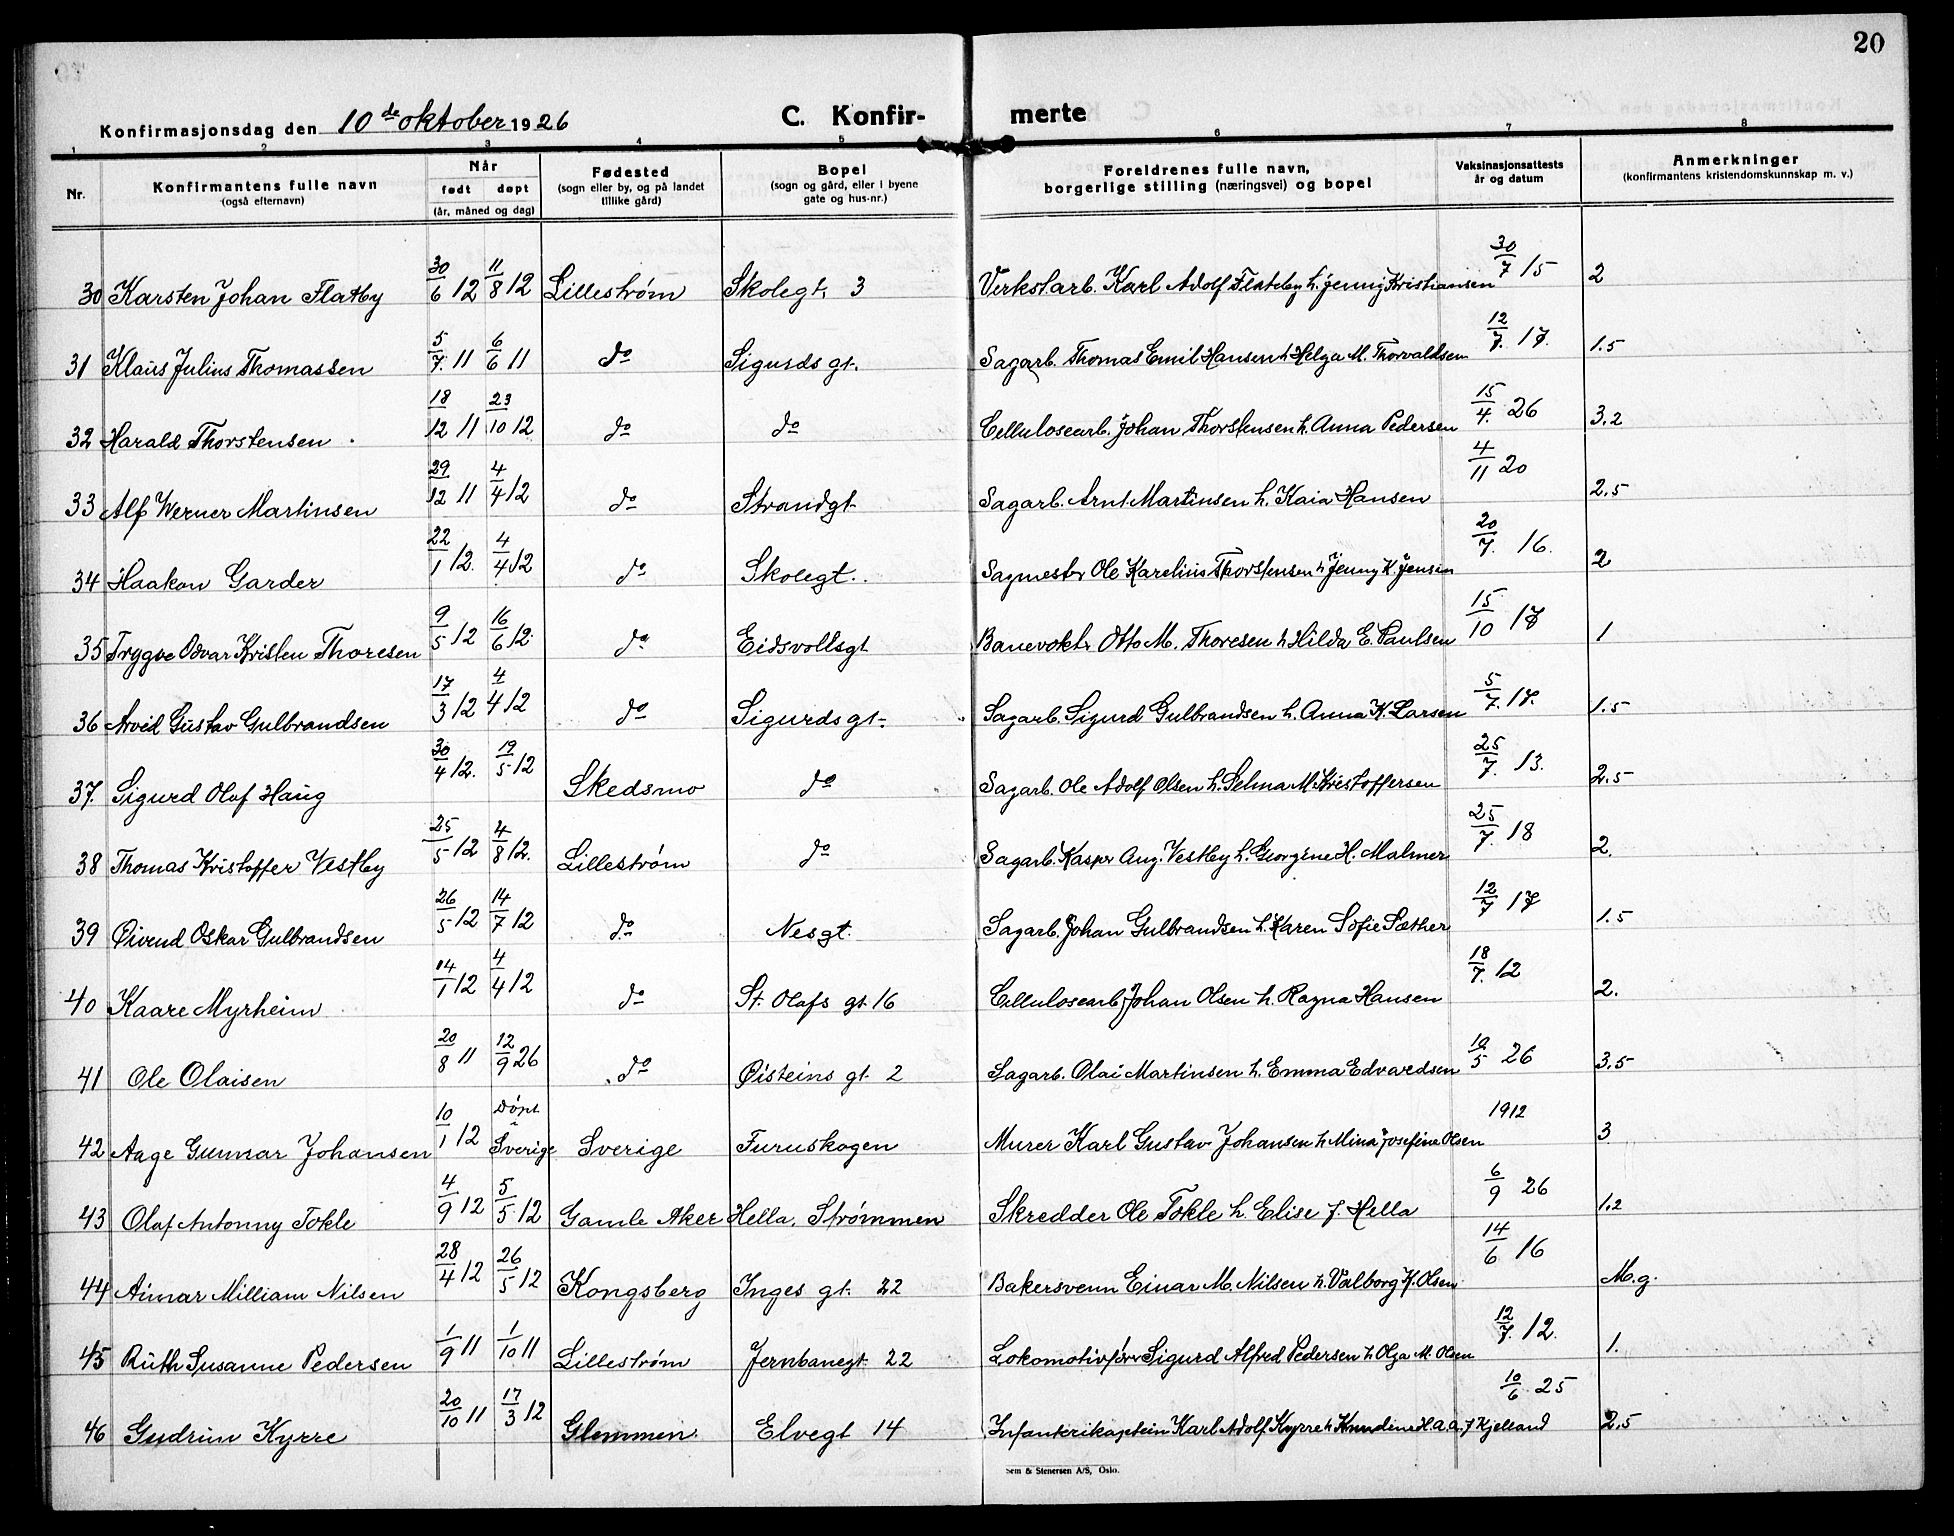 20
Konfirmasjonsdag den 10de oktober 1926 C. Konfir- merte
1 2 3 4 5 6 7 8
Nr. Konfirmantens fulle navn (også efternavn) Når født døpt (år, måned og dag) Fødested (sogn eller by, og på landet tillike gård) Bopel (sogn og gård, eller i byene gate og hus-nr.) Foreldrenes fulle navn, borgerlige stilling (næringsvei) og bopel Vaksinasjonsattests år og datum Anmerkninger (konfirmantens kristendomskunnskap m. v.)
30 Karsten Johan Flatby 30/6 12 11/8 12 Lillestrøm Skolegt. 3 Verkstarb. Karl Adolf Flatby h. Jenny Kristiansen 30/7 15 2
31 Klaus Julius Thomassen 5/7. 11 6/6 11 do Sigurds gt. Sagarb. Thomas Emil Hansen h Helga M. Thorvaldsen 12/7. 17. 1.5
32 Harald Thorstensen. 18/12 11 23/10 12 do do Cellulosearb. Johan Thorstensen h. Anna Pedersen 15/4. 26 3.2
33 Alf Werner Martinsen 29/12 11 4/4 12 do Strandgt. Sagarb. Arnt Martinsen h. Kaia Hansen 4/11 20 2.5
34 Haakon Garder 22/1 12. 4/4 12 do Skolegt. Sagmester Ole Karelius Thorstensen h Jenny K. Jensen 20/7. 16. 2
35 Trygve Odvar Kristen Thoresen 9/5 12 16/6 12. do Eidsvollsgt. Banevokt. Otto M. Thoresen h Hilda E. Paulsen 15/10 18 1
36 Arvid Gustav Gulbrandsen 17/3 12 4/4 12 do Sigurdsgt. Sagarb. Sigurd Gulbrandsen h. Anna K. Larsen 5/7. 17. 1.5
37. Sigurd Olaf Haug 30/4 12. 19/5 12 Skedsmo do Sagarb. Ole Adolf Olsen h. Selma M. Kristoffersen 25/7. 13. 2.5
38 Thomas Kristoffer Vestby 25/5 12 4/8 12. Lillestrøm do Sagarb. Kasper Aug. Vestby h. Georgine H. Malmer 25/7. 18 2.
39 Øivind Oskar Gulbrandsen 26/5 12 14/7 12 do Nesgt. Sagarb. Johan Gulbrandsen h. Karen Sofie Sæther 12/7 17 1.5
40 Kaare Myrheim 14/1 12 4/4 12 do St. Olafs gt. 16 Cellulosearb. Johan Olsen h. Ragna Hansen 18/7. 12 2.
41 Ole Olaisen 20/8 11 12/9 26 do Øisteins gt. 2 Sagarb. Olai Martinsen h. Emma Edvardsen 10/5 26 3.5
42 Aage Gunnar Johansen 10/1 12 Døpt i Sverige Sverige Furuskogen Murer Karl Gustav Johansen h Mina Josefine Olsen 1912 3
43 Olaf Antonny Tokle 4/9 12 5/5 12 Gamle Aker Hella, Strømmen Skredder Ole Tokle h. Elise f. Hella 6/9 26 1.2
44 Aimar William Nilsen 28/4 12 26/5 12 Kongsberg Inges gt. 22 Bakersvenn Einar M. Nilsen h. Valborg K. Olsen 14/6 16 M.g.
45 Ruth Susanne Pedersen 1/9 11 1/10 11 Lillestrøm Jernbanegt. 22 Lokomotivfører Sigurd Alfred Pedersen h Olga M. Olsen 12/7. 12. 1.
46 Gudrun Kyrre 20/10 11 17/3 12 Glemmen Elvegt 14 Infanterikaptein Karl Adolf Kyrre h Knudine H. a. a. f Kjelland 10/6 25 2.5
Sem & Stenersen A/S, Oslo.